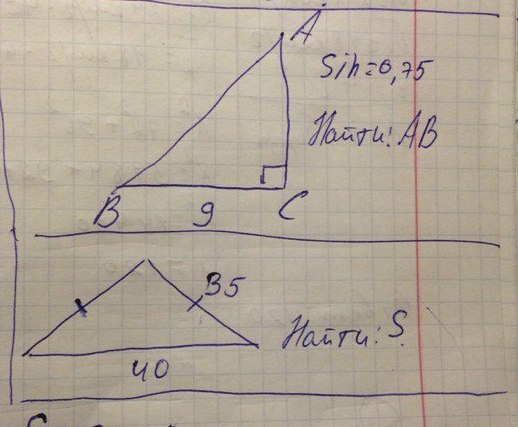 A
Sin=0,75
Найти: AB
B
9
C
35
Найти: S
40